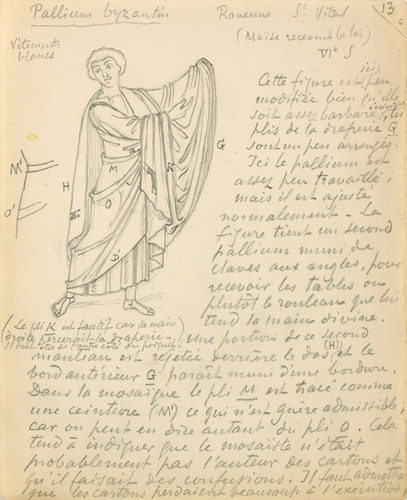 Pallium byzantin Ravenne St Vital 13
6
Vêtements
blancs
(Moïse recevant la loi)
VIe S
ici
Cette figure est peu
modifiée bien qu'elle
soit assez barbare, les
plis de la draperie G
sont un peu arrangés.
Ici le pallium est
assez peu travaillé,
mais il est ajusté
normalement - La
figure tient un second
pallium muni de
claves aux angles, pour
recevoir les tables ou
plutôt le rouleau que lui
tend la main divine.
M'
O'
H
M
a
K
G
O
(Le pli K est fautif car la main
droite percerait la draperie -
Il doit être de l'autre côté du poignet)
Une portion de ce second
manteau est rejetée derrière le dos (H) et le
bord antérieur G paraît muni d'une bordure.
Dans la mosaïque le pli M est tracé comme
une ceinture (M') ce qui n'est guère admissible,
car on peut en dire autant du pli O. Cela
tend à indiquer que le mosaïste n'était
probablement pas l'auteur des cartons et
qu'il faisait des confusions. Il faut admettre
que les cartons perdaient beaucoup à l'exécution